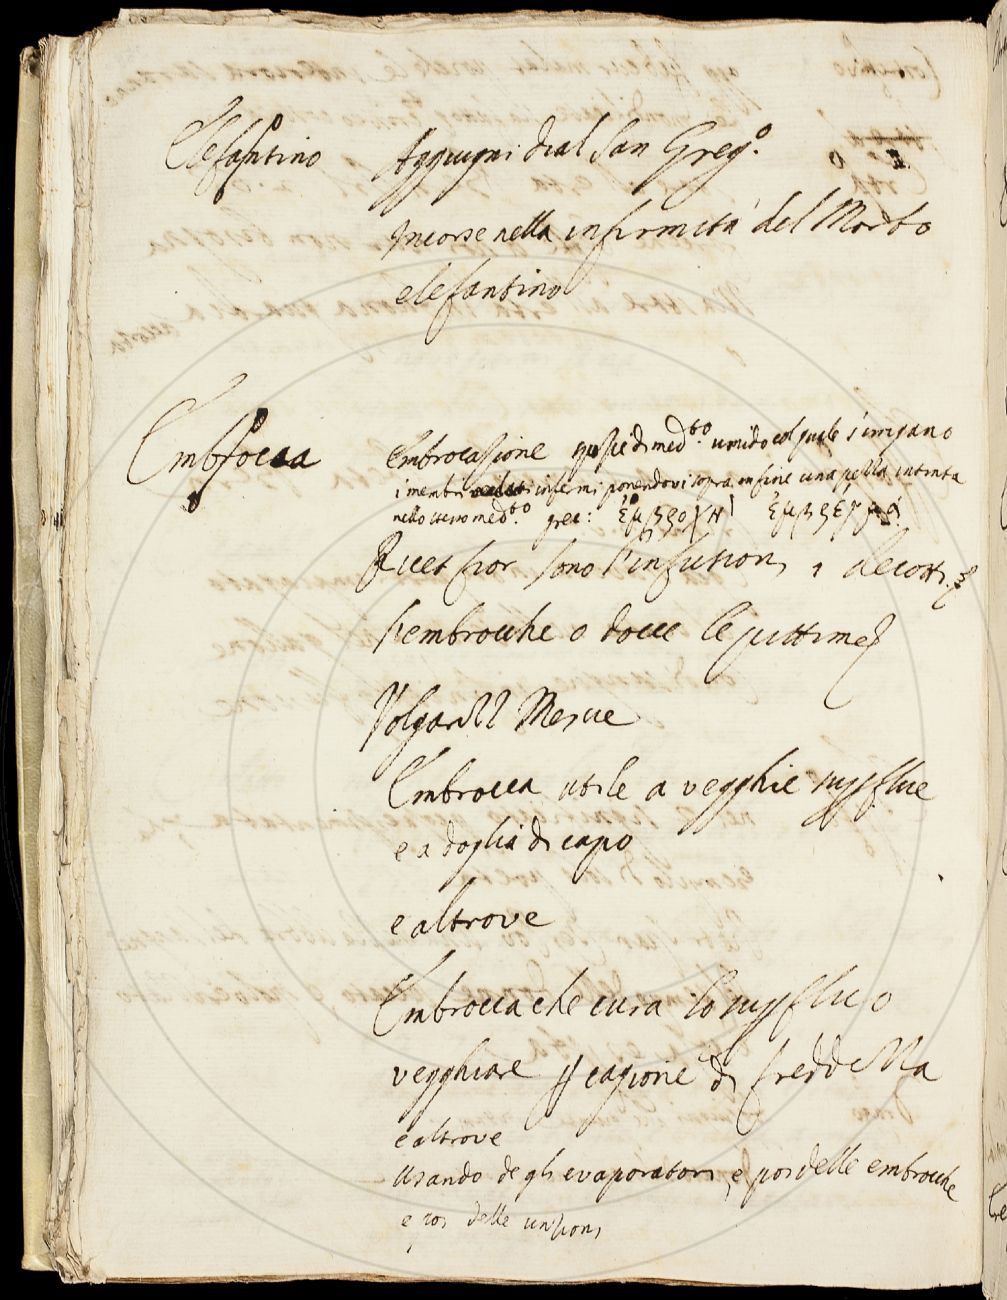 Elefantino Aggiugni dial San Greg.o
Incorse nella infirmità del Morbo
elefantino
Embrocca embrocazione spezie di med.to umido col quale s'irrigano
i membri infermi ponendovi sopra infine una pezza intinta
nello stesso med.to grec: ἐμβροχὴ ἐμβρεγμα
Ricet fior sono l'infusioni, i decotti
l'embrocche o docce le pittime
Volgarizz Mesue
Embrocca utile a vegghie superflue
e a doglia di capo
e altrove
Embrocca che cura lo superfluo
vegghiare per cagione di freddezza
e altrove
Usando degli evaporatori, e poi delle embrocche
e poi delle unzioni